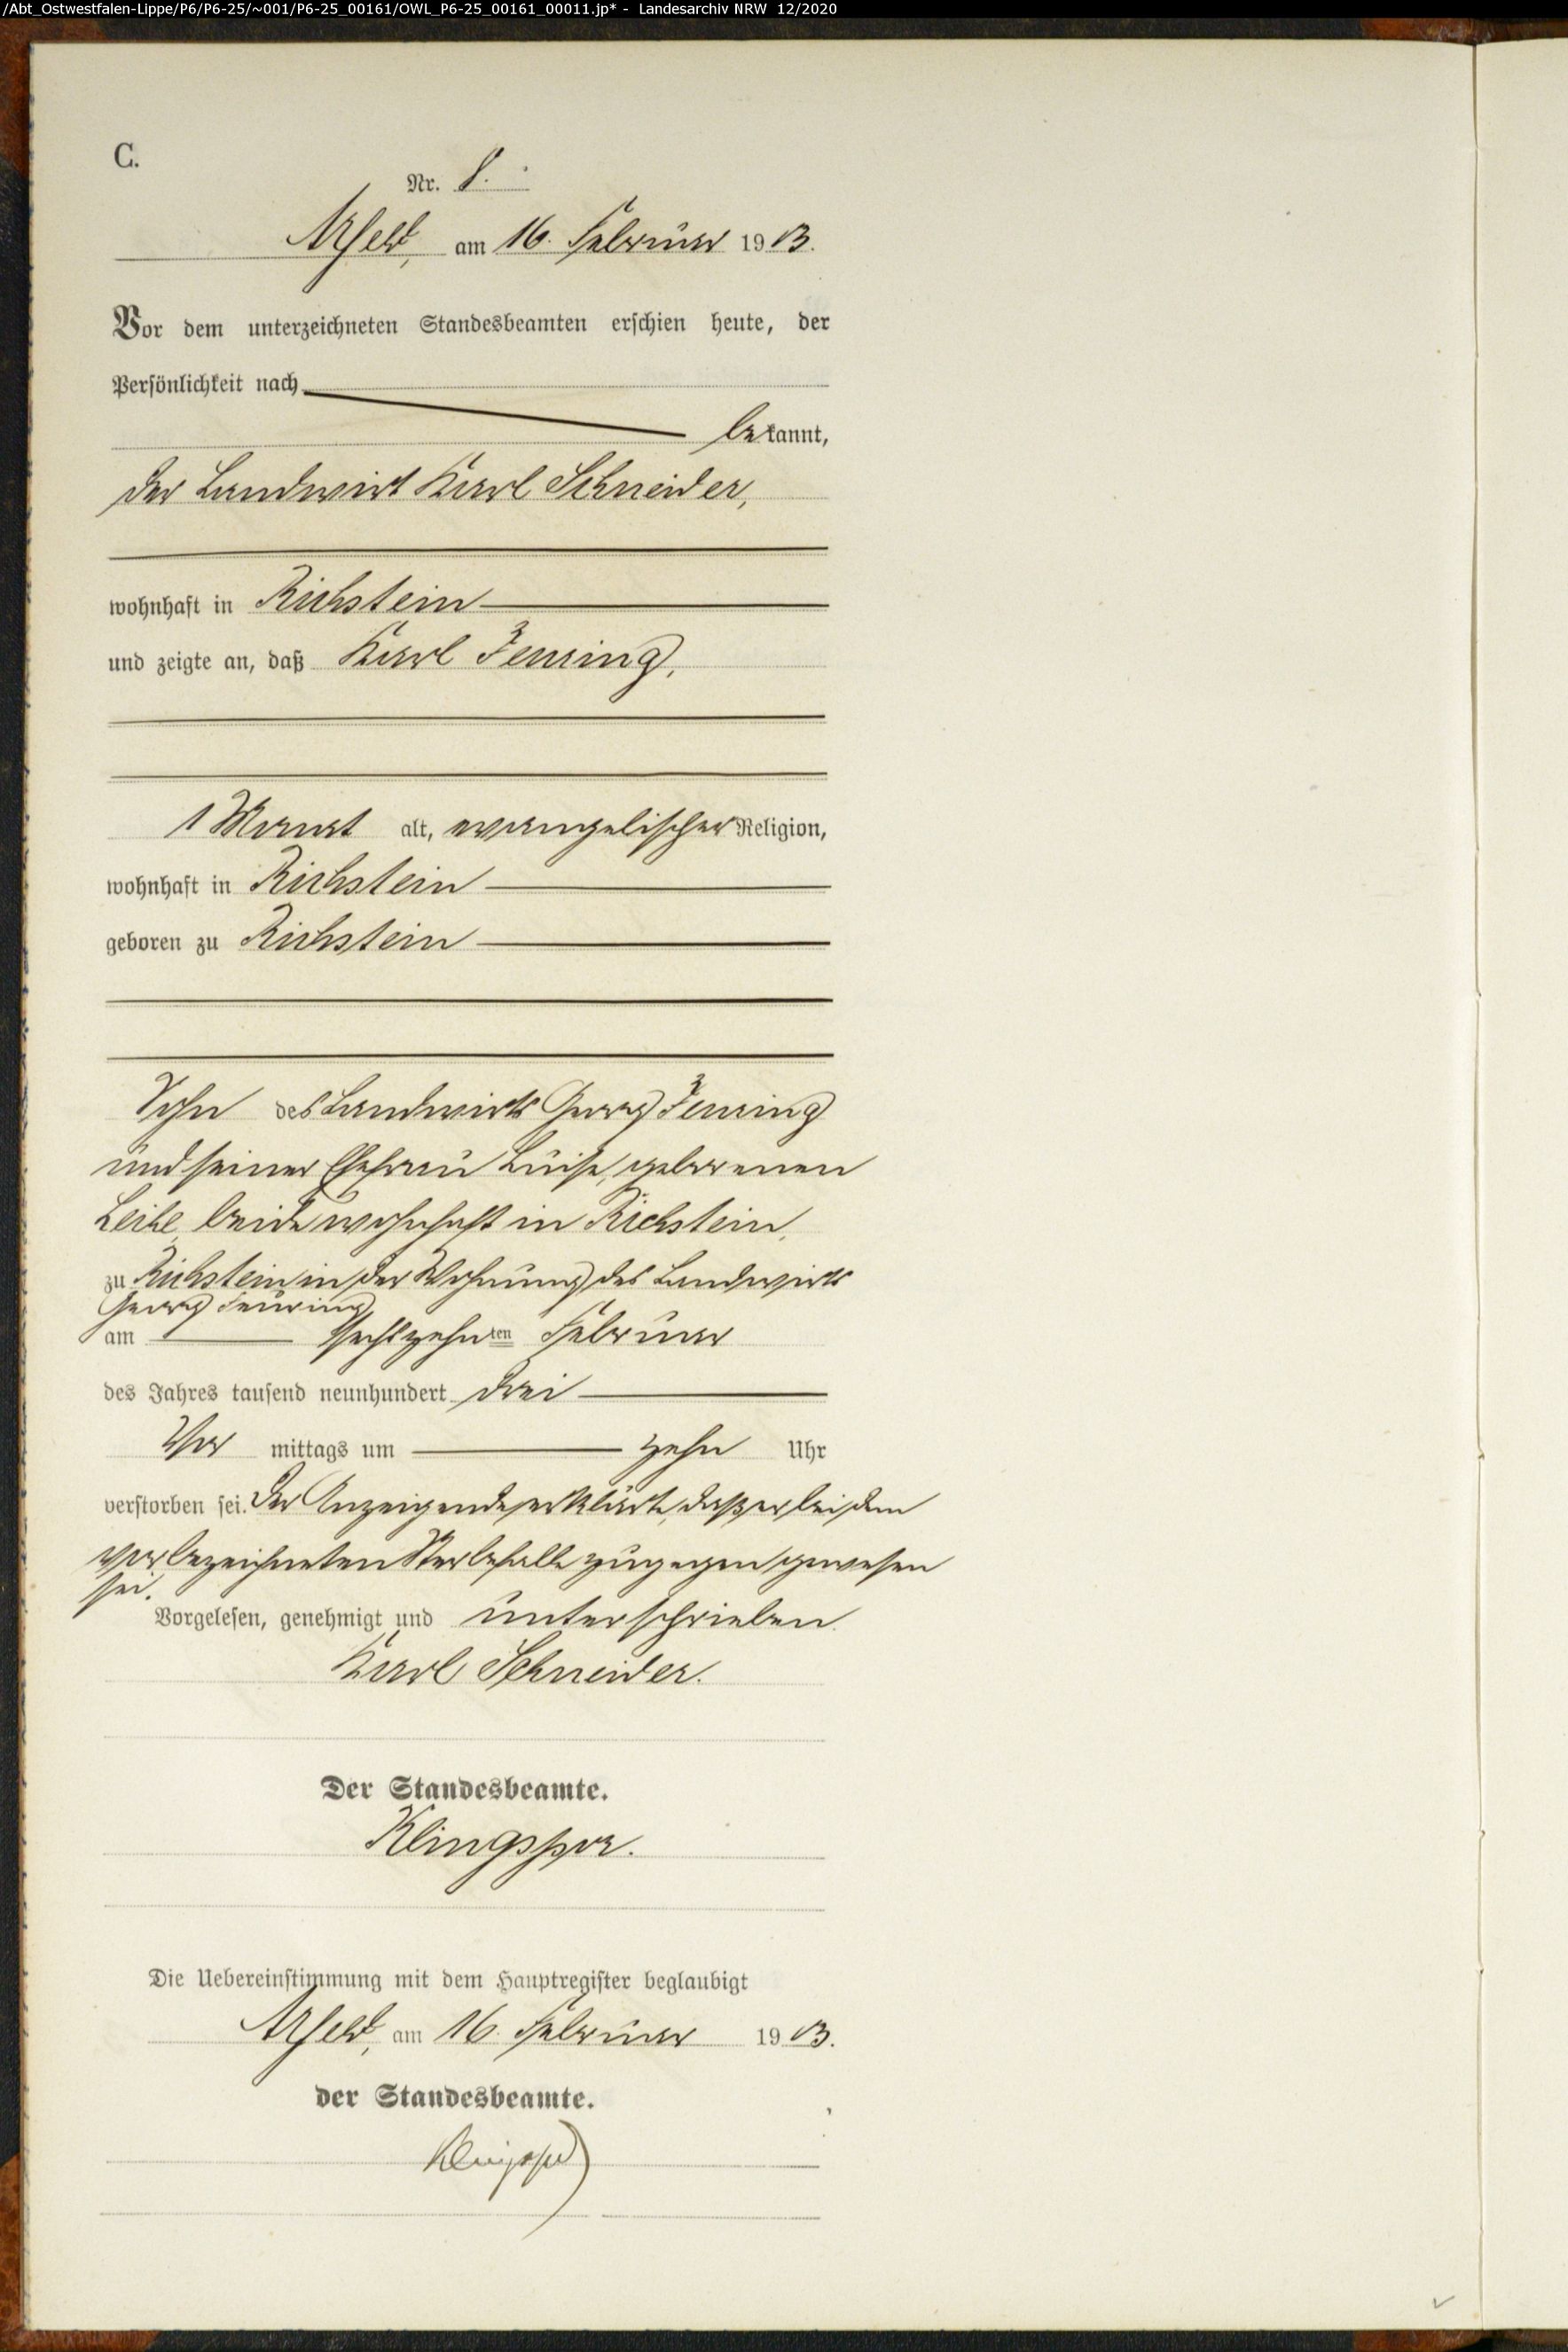 /Abt_Ostwestfalen-Lippe/P6/P6-25/~001/P6-25_00161/OWL_P6-25_00161_00011.jp* - Landesarchiv NRW 12/2020
C.
Nr. 8.
Arfeld, am 16. Februar 1903.
Vor dem unterzeichneten Standesbeamten erschien heute, der
Persönlichkeit nach
bekannt,
der Landwirt Karl Schneider,
wohnhaft in Richstein
und zeigte an, daß Karl Feuring,
1 Monat alt, evangelischer Religion,
wohnhaft in Richstein
geboren zu Richstein
Sohn des Landwirts Georg Feuring
und seiner Ehefrau Luise, geborenen
beide wohnhaft in Richstein,
zu Richstein in der Wohnung des Landwirts
Georg Feuring
am sechszehnten Februar
des Jahres tausend neunhundert drei
Vor mittags um zehn Uhr
verstorben sei. Der Anzeigende erklärte, daß er bei dem
vorbezeichneten Sterbefalle zugegen gewesen
sei.
Vorgelesen, genehmigt und unterschrieben.
Karl Schneider.
Der Standesbeamte.
Klingspor.
Die Uebereinstimmung mit dem Hauptregister beglaubigt
Arfeld, am 16. Februar 1903.
der Standesbeamte.
Klingspor